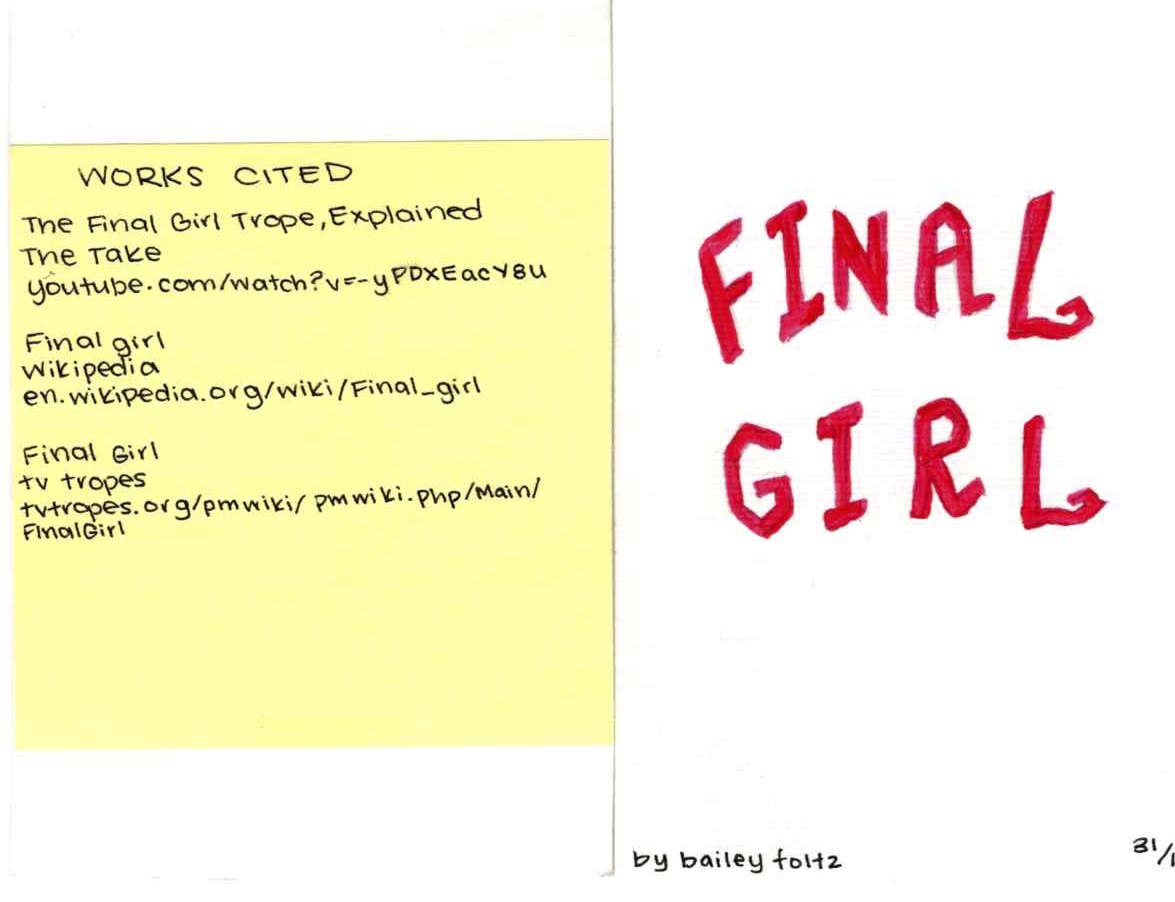 WORKS CITED
The Final Girl Trope, Explained
The Take
youtube.com/watch?v=-yPDxEacY8U
Final girl
Wikipedia
en.wikipedia.org/wiki/Final_girl
Final Girl
tv tropes
tvtropes.org/pmwiki/pmwiki.php/Main/
FinalGirl
FINAL
GIRL
by bailey foltz
31/1